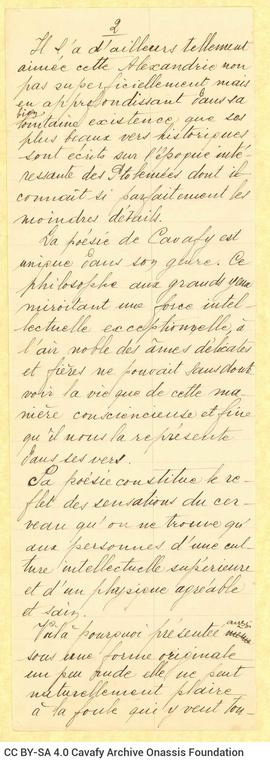 2
Il l'a d'ailleurs tellement
aimée cette Alexandrie non
pas superficiellement mais
en approfondissant dans sa
bien
lointaine existence, que ses
plus beaux vers historiques
sont écrits sur l'époque inté-
ressante des Ptolemées dont il
connait si parfaitement les
moindres détails.
La poésie de Cavafy est
unique dans son genre. Ce
philosophe aux grands yeux
miroitant une force intel-
lectuelle exceptionnelle, à
l'air noble des âmes délicates
et fières ne pouvait sans doute
voir la vie que de cette ma-
nière consciencieuse et fine
qu'il nous la représente
dans ses vers.
Sa poésie constitue le re-
flet des sensations du cer-
veau qu'on ne trouve qu'
aux personnes d'une cul-
ture intellectuelle supérieure
et d'un physique agréable
et sain.
Voilà pourquoi présentée
sous une forme originale
un peu rude elle ne peut
naturellement plaire
à la foule qui y veut tou-
CC BY-SA 4.0 Cavafy Archive Onassis Foundation